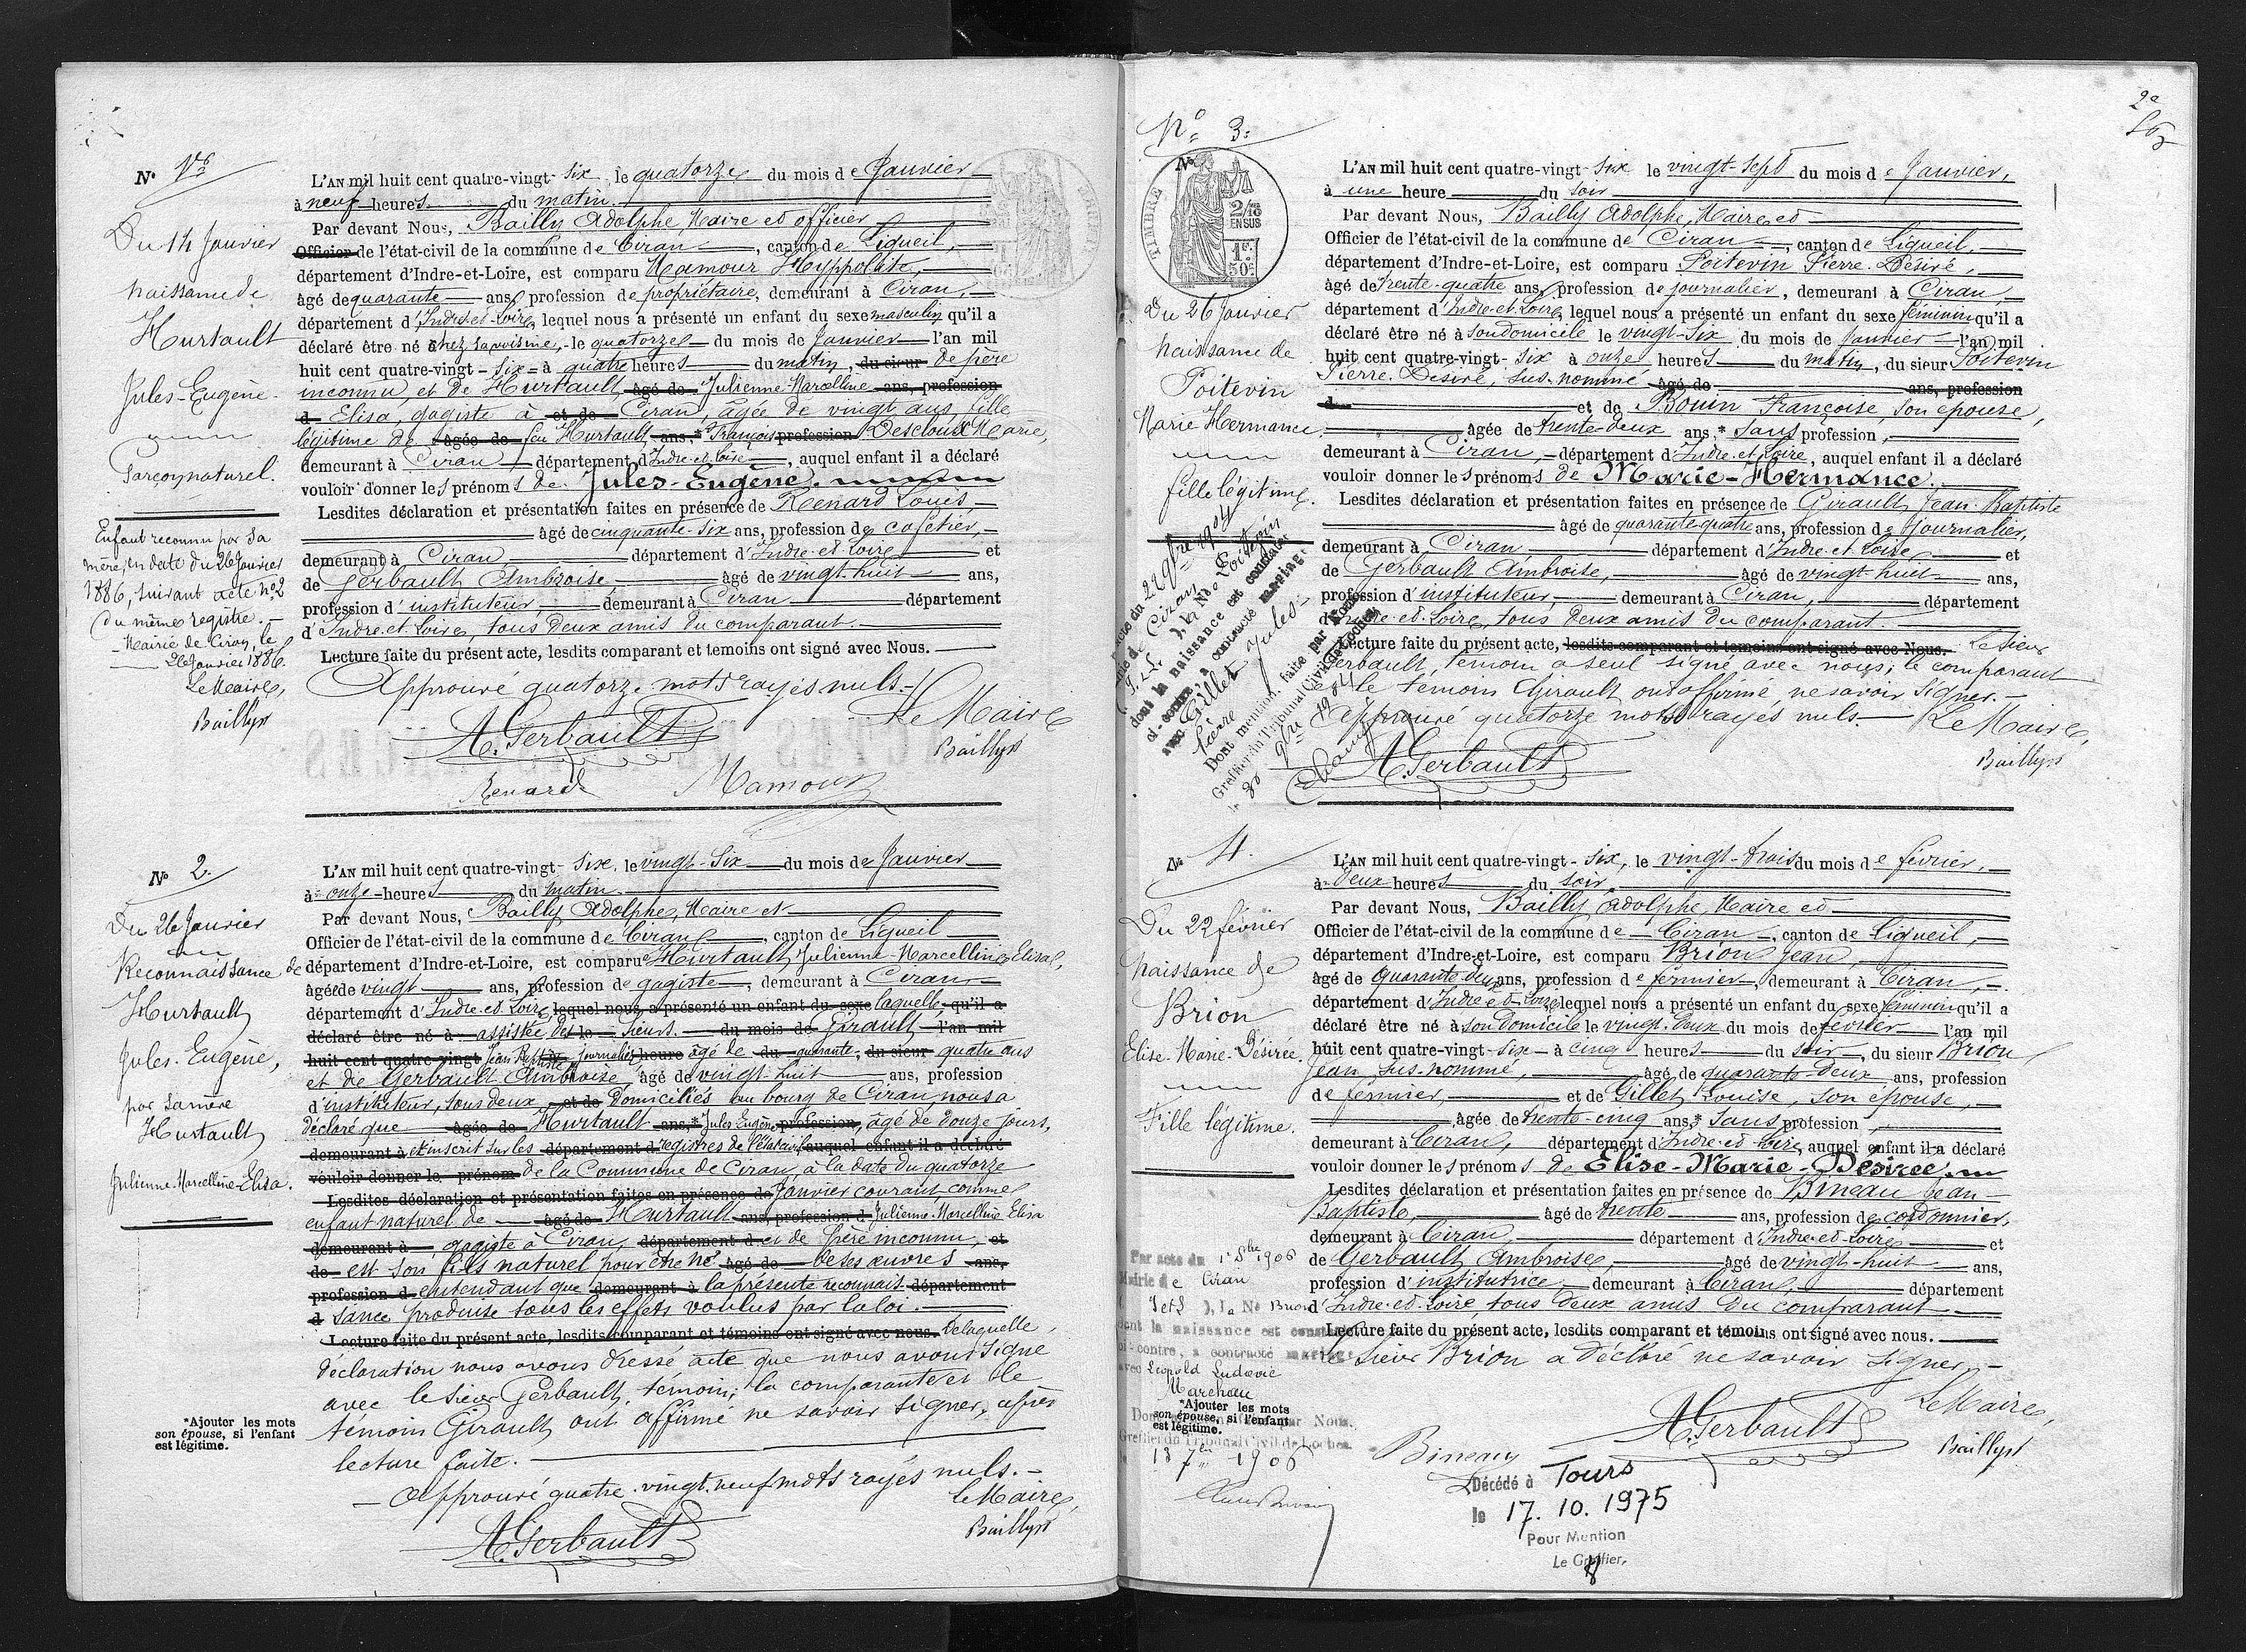 N° 1er
Du 14 Janvier
naissance de
Hurtault
Jules-Eugène.
Garçon naturel.
Enfant reconnu par sa
mère, en date du 26 Janvier
1886, suivant acte n° 2
du même registre. —
Mairie de Ciran, le
26 Janvier 1886.
Le Maire,
Bailly
L'AN mil huit cent quatre-vingt-six, le quatorze du mois de Janvier
à neuf heures du matin.
Par devant Nous, Bailly Adolphe, Maire et officier
Officier de l'état-civil de la commune de Ciran, canton de Ligueil,
département d'Indre-et-Loire, est comparu Mamour Hyppolite,
âgé de quarante ans, profession de propriétaire, demeurant à Ciran,
département d'Indre-et-Loire, lequel nous a présenté un enfant du sexe masculin qu'il a
déclaré être né chez sa voisine, le quatorze du mois de Janvier l'an mil
huit cent quatre-vingt-six à quatre heures du matin, du sieur de père
inconnu et de Hurtault âgé de Julienne-Marcelline ans, profession
d Elisa, gagiste à et de Ciran, âgée de vingt ans, fille
légitime de âgée de feu Hurtault ans,* François profession Descloux Marie,
demeurant à Ciran département d'Indre-et-Loire, auquel enfant il a déclaré
vouloir donner les prénoms de Jules-Eugène.
Lesdites déclaration et présentation faites en présence de Renard Louis
âgé de cinquante-six ans, profession de cafetier,
demeurant à Ciran département d'Indre-et-Loire et
de Gerbault Ambroise âgé de vingt-huit ans,
profession d'instituteur, demeurant à Ciran département
d'Indre-et-Loire, tous deux amis du comparant.
Lecture faite du présent acte, lesdits comparant et temoins ont signé avec Nous.
Approuvé quatorze mots rayés nuls.
Le Maire
A. Gerbault
Bailly
Renard
Mamour
N° 2.
Du 26 Janvier
Reconnaissance de
Hurtault
Jules-Eugène,
par sa mère
Hurtault
Julienne-Marcelline-Elisa.
L'AN mil huit cent quatre-vingt-six, le vingt-six du mois de Janvier
à onze heures du matin.
Par devant Nous, Bailly Adolphe, Maire et
Officier de l'état-civil de la commune de Ciran, canton de Ligueil
département d'Indre-et-Loire, est comparue Hurtault Julienne-Marcelline Elisa,
âgée de vingt ans, profession de gagiste, demeurant à Ciran
département d'Indre-et-Loire, lequel nous a présenté un enfant du sexe laquelle, qu'il a
déclaré être né à assistée des le sieurs. du mois de Girault l'an mil
huit cent quatre-vingt Jean Baptiste journalier heure âgé de du quarante, du sieur quatre ans
et de Gerbault Ambroise, âgé de vingt-huit ans, profession
d'instituteur, tous deux et de domiciliés au bourg de Ciran, nous a
déclaré que âgée de Hurtault ans,* Jules Eugène profession, âgé de douze jours,
demeurant à et inscrit sur les département d registres de l'état civil auquel enfant il a déclaré
vouloir donner le prénom de la Commune de Ciran, à la date du quatorze
Lesdites déclaration et présentation faites en présence de Janvier courant comme
enfant naturel de âgé de Hurtault ans, profession d Julienne-Marcelline Elisa
demeurant à gagiste à Ciran, département d et de père inconnu, et
de est son fils naturel pour être né âgé de de ses œuvres ans,
profession d entendant que demeurant à la présente reconnais- département
d sance produise tous les effets voulus par la loi.
Lecture faite du présent acte, lesdits comparant et témoins ont signé avec nous. De laquelle
déclaration nous avons dressé acte que nous avons signé
avec le sieur Gerbault, témoin; la comparante et le
témoin Girault ont affirmé ne savoir signer, après
lecture faite.
Approuvé quatre-vingt-neuf mots rayés nuls.
Le Maire,
Bailly
A. Gerbault
*Ajouter les mots
son épouse, si l'enfant
est légitime.
2e
N° 3.
TIMBRE
2/10
EN SUS
1F.
50C
Du 26 Janvier
naissance de
Poitevin
Marie Hermance
fille légitime.
dont la naissance est constatée
ci-contre, a contracté mariage
avec Gillet Jules-
Dont mention faite par Nous
Greffier du Tribunal Civil de Loches
L'AN mil huit cent quatre-vingt-six le vingt-sept du mois de Janvier,
à une heure du soir
Par devant Nous, Bailly Adolphe, Maire et
Officier de l'état-civil de la commune de Ciran, canton de Ligueil,
département d'Indre-et-Loire, est comparu Poitevin Pierre-Désiré,
âgé de trente-quatre ans, profession de journalier, demeurant à Ciran,
département d'Indre-et-Loire, lequel nous a présenté un enfant du sexe féminin qu'il a
déclaré être né à son domicile le vingt-six du mois de Janvier l'an mil
huit cent quatre-vingt-six à onze heures du matin, du sieur Poitevin
Pierre-Désiré, sus-nommé âgé de ans, profession
d et de Bouin Françoise, son épouse,
âgée de trente-deux ans,* sans profession,
demeurant à Ciran, département d'Indre-et-Loire, auquel enfant il a déclaré
vouloir donner les prénoms de Marie-Hermance.
Lesdites déclaration et présentation faites en présence de Girault Jean-Baptiste
âgé de quarante-quatre ans, profession de journalier,
demeurant à Ciran département d'Indre-et-Loire et
de Gerbault Ambroise, âgé de vingt-huit ans,
profession d'instituteur, demeurant à Ciran, département
d'Indre-et-Loire, tous deux amis du comparant.
Lecture faite du présent acte, lesdits comparant et temoins ont signé avec Nous. Le sieur
Gerbault, témoin a seul signé avec nous; le comparant
et le témoin Girault ont affirmé ne savoir signer.
Approuvé quatorze mots rayés nuls. Le Maire,
A. Gerbault
Bailly
N° 4.
Du 22 février
naissance de
Brion
Elise-Marie-Désirée.
Fille légitime.
Par acte du 1er 8bre 1906
Mairie de Ciran
), la Née Brion
dont la naissance est constatée
ci-contre, a contracté mariage
avec Léopold Ludovic
Marchau
*Ajouter les mots
son épouse, si l'enfant
est légitime.
Greffier du Tribunal Civil de Loches
1906
L'AN mil huit cent quatre-vingt-six, le vingt-trois du mois de février,
à deux heures du soir,
Par devant Nous, Bailly Adolphe, Maire et
Officier de l'état-civil de la commune de Ciran, canton de Ligueil,
département d'Indre-et-Loire, est comparu Brion Jean,
âgé de quarante-deux ans, profession de fermier, demeurant à Ciran,
département d'Indre-et-Loire lequel nous a présenté un enfant du sexe féminin qu'il a
déclaré être né à son domicile le vingt-deux du mois de février l'an mil
huit cent quatre-vingt-six à cinq heures du soir, du sieur Brion
Jean, sus-nommé, âgé de quarante-deux ans, profession
de fermier, et de Gillet Louise, son épouse,
âgée de trente-cinq ans,* sans profession
demeurant à Ciran, département d'Indre-et-Loire, auquel enfant il a déclaré
vouloir donner les prénoms de Elise-Marie-Désirée.
Lesdites déclaration et présentation faites en présence de Bineau Jean-
Baptiste, âgé de trente ans, profession de cordonnier,
demeurant à Ciran, département d'Indre-et-Loire et
de Gerbault Ambroise, âgé de vingt-huit ans,
profession d'institutrice demeurant à Ciran, département
d'Indre-et-Loire tous deux amis du comparant.
Lecture faite du présent acte, lesdits comparant et témoins ont signé avec nous.
le sieur Brion a déclaré ne savoir signer.
Le Maire,
A. Gerbault
Bineau
Bailly
Décédé à Tours
le 17.10.1975
Pour Mention
Le Greffier,